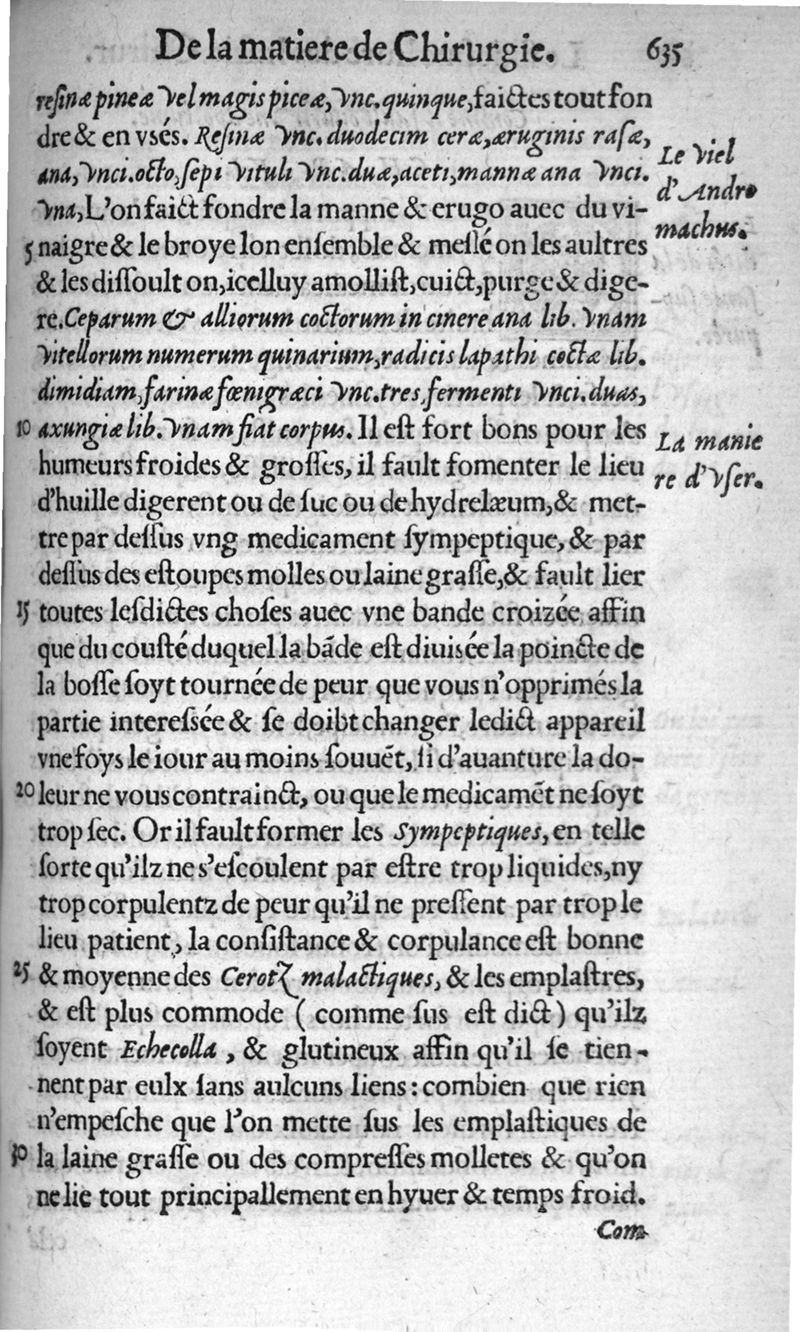 De la matiere de Chirurgie. 635
resinæ pineæ vel magis piceæ, vnc. quinque, faictes tout fon
dre & en vsés. Resinæ vnc. duodecim ceræ, æruginis rasæ,
ana, vnci. octo, sepi vituli vnc. duæ, aceti, mannæ ana vnci.
Le viel
d'Andro
machus.
vna, L'on faict fondre la manne & erugo auec du vi-
5 naigre & le broye lon ensemble & meslé on les aultres
& les dissoult on, icelluy amollist, cuict, purge & dige-
re. Ceparum & alliorum coctorum in cinere ana lib. vnam
vitellorum numerum quinarium, radicis lapathi coctæ lib.
dimidiam, farinæ fœnigræci vnc. tres fermenti vnci. duas,
10 axungiæ lib. vnam fiat corpus. Il est fort bons pour les
La manie
re d'vser.
humeurs froides & grosses, il fault fomenter le lieu
d'huille digerent ou de suc ou de hydrelæum, & met-
tre par dessus vng medicament sympeptique, & par
dessus des estoupes molles ou laine grasse, & fault lier
15 toutes lesdictes choses auec vne bande croizée affin
que du cousté duquel la bãde est diuisée la poincte de
la bosse soyt tournée de peur que vous n'opprimés la
partie interessée & se doibt changer ledict appareil
vne foys le iour au moins souuẽt, si d'auanture la do-
20 leur ne vous contrainct, ou que le medicamẽt ne soyt
trop sec. Or il fault former les Sympeptiques, en telle
sorte qu'ilz ne s'escoulent par estre trop liquides, ny
trop corpulentz de peur qu'il ne pressent par trop le
lieu patient, la consistance & corpulance est bonne
25 & moyenne des Cerotz malactiques, & les emplastres,
& est plus commode ( comme sus est dict ) qu'ilz
soyent Echecolla, & glutineux affin qu'il se tien-
nent par eulx sans aulcuns liens: combien que rien
n'empesche que l'on mette sus les emplastiques de
30 la laine grasse ou des compresses molletes & qu'on
ne lie tout principallement en hyuer & temps froid.
Com-